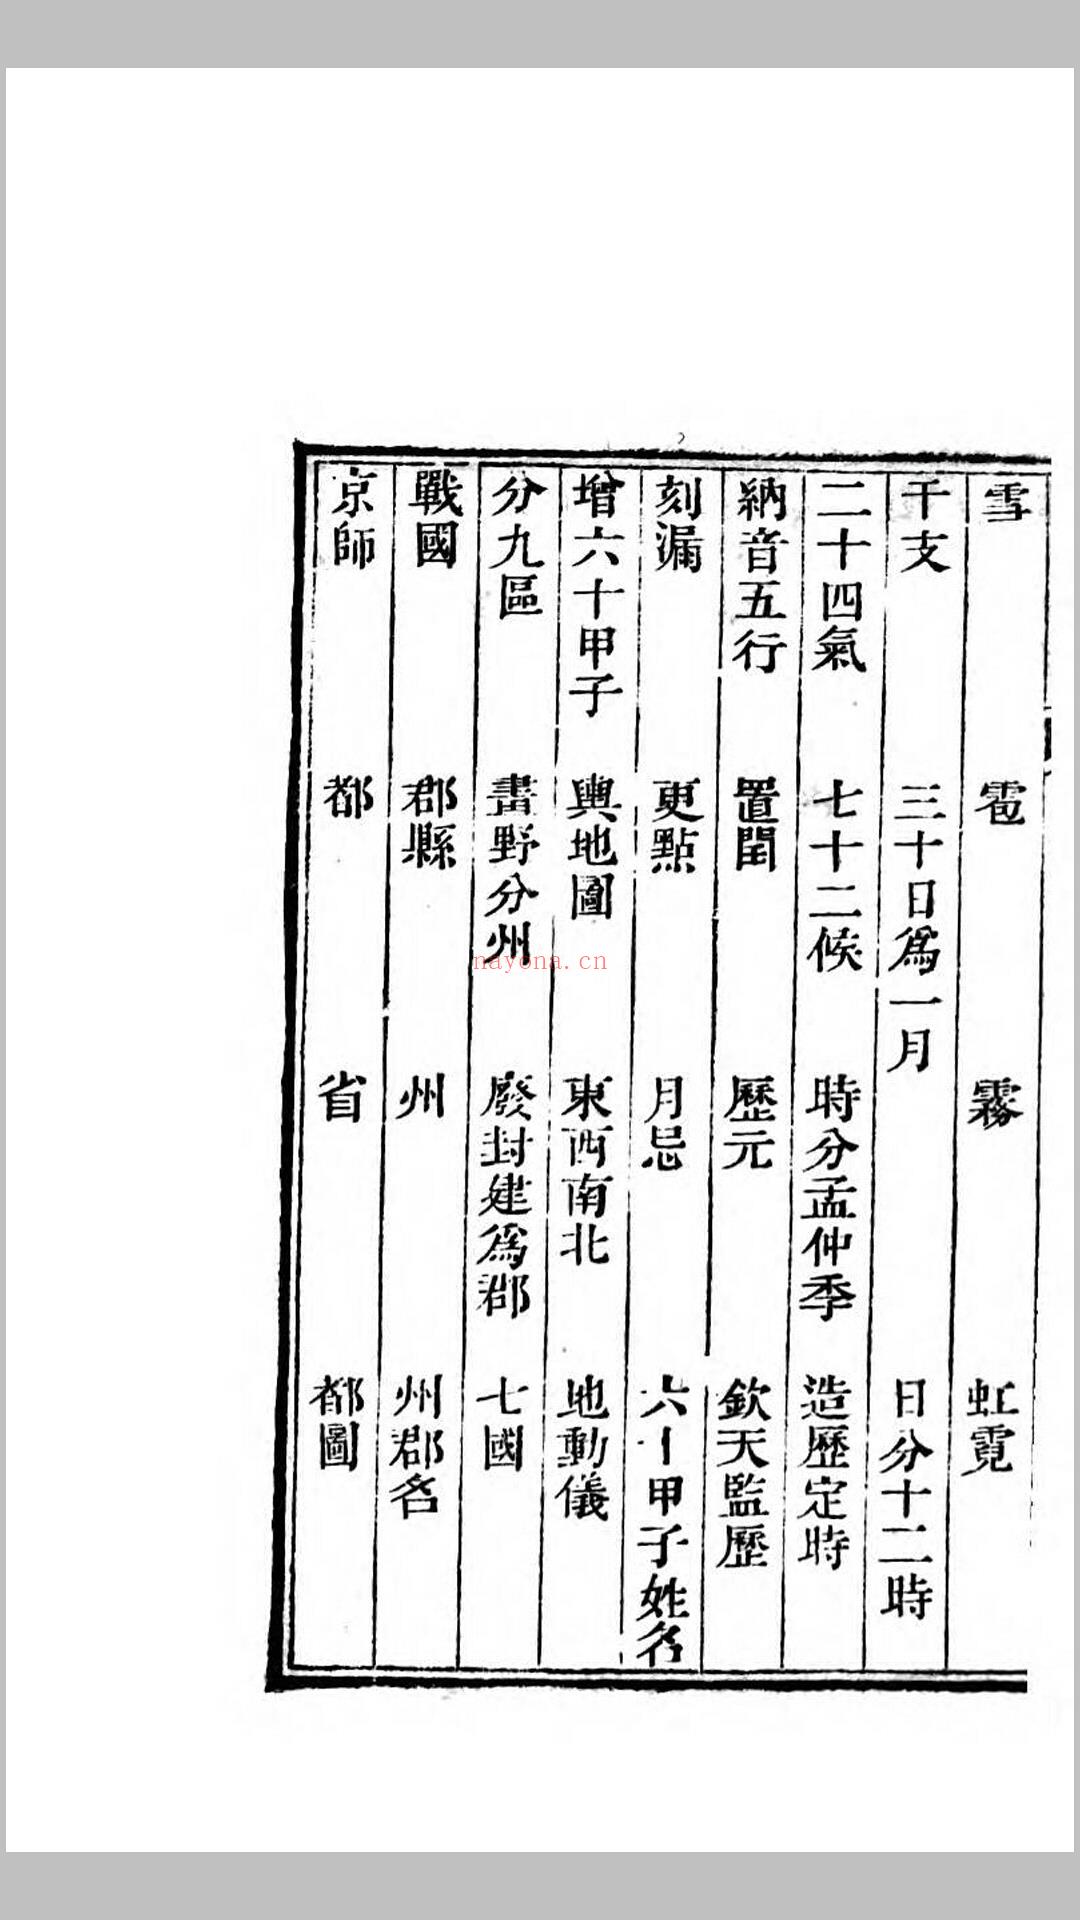 雪　雹　霧　虹霓
干支　三十日爲一月　日分十二時
二十四氣　七十二候　時分孟仲季　造歷定時
納音五行　置閏　歷元　欽天監歷
刻漏　更點　月忌　六十甲子姓名
增六十甲子　輿地圖　東西南北　地動儀
分九區　畫野分州　廢封建爲郡　七國
戰國　郡縣　州　州郡名
京師　都　省　都圖
nayona.cn